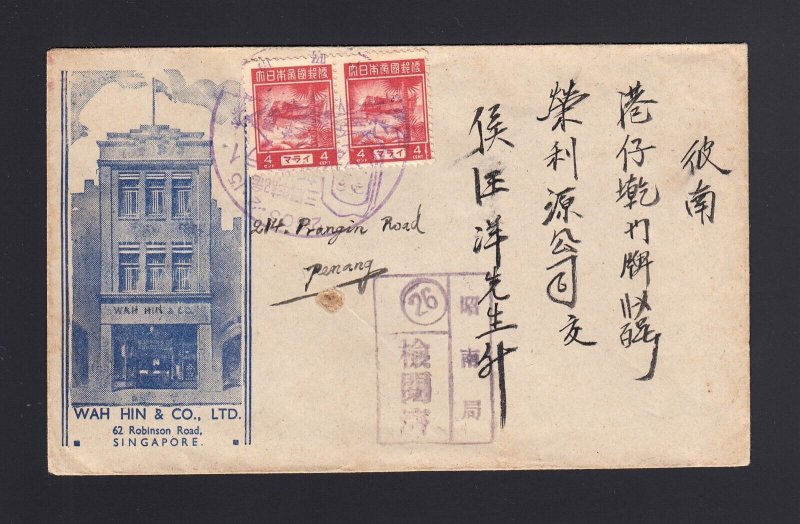 大日本帝國郵便
大日本帝國郵便
4 マライ 4
4 マライ 4
214. Prangin Road
Penang
彼南
港仔墘門牌
榮利源公司交
侯汪洋先生升
26
昭南局
檢閲濟
WAH HIN & CO.
WAH HIN & CO., LTD.
62 Robinson Road,
SINGAPORE.